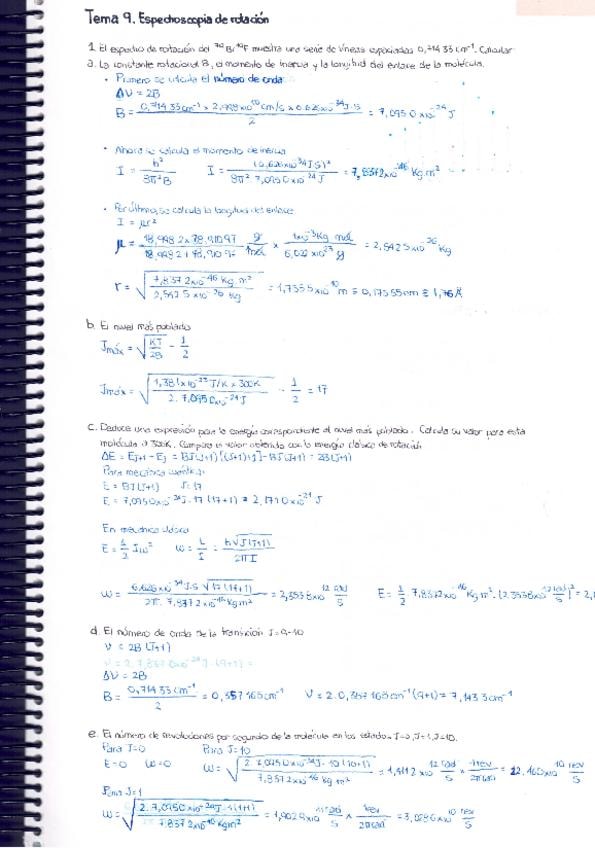 Tema 9. Espectroscopia de rotación
1. El espectro de rotación del ⁷⁹Br¹⁹F muestra una serie de líneas espaciadas 0,71433 cm⁻¹. Calcular
a. La constante rotacional B, el momento de inercia y la longitud del enlace de la molécula.
• Primero se calcula el número de onda:
ΔV = 2B
B = 0,71433 cm⁻¹ x 2,998x10¹⁰ cm/s x 6.626x10⁻³⁴ J·s / 2 = 7,0950x10⁻²⁴ J
• Ahora se calcula el momento de inercia
I = h² / 8π²B I = (6,626x10⁻³⁴ J·S)² / 8π² 7,0950x10⁻²⁴ J = 7,8372x10⁻⁴⁶ Kg·m²
• Por último, se calcula la longitud del enlace
I = μr²
μ = 18,9982 x 78,91097 / 18,9982 + 78,91097 g/mol x 10⁻³ Kg mol / 6,022x10²³ g = 2,5425x10⁻²⁶ Kg
r = √(7,8372x10⁻⁴⁶ Kg·m² / 2,5425x10⁻²⁶ Kg) = 1,7555x10⁻¹⁰ m ≡ 0,17555 nm ≡ 1,76 Å
b. El nivel más poblado
Jmáx = √(KT / 2B) - 1/2
Jmáx = √(1,381x10⁻²³ J/K x 300K / 2·7,0950x10⁻²⁴ J) - 1/2 = 17
c. Deduce una expresión para la energía correspondiente al nivel más poblado. Calcula su valor para esta
molécula a 300K. Compara el valor obtenido con la energía clásica de rotación
ΔE = EJ+1 - EJ = B(J+1)[(J+1)+1] - BJ(J+1) = 2B(J+1)
Para mecánica cuántica:
E = BJ(J+1) J=17
E = 7,0950x10⁻²⁴ J·17 (17+1) = 2,1710x10⁻²¹ J
En mecánica clásica
E = 1/2 Iω² ω = L/I = h√J(J+1) / 2πI
ω = 6,626x10⁻³⁴ J·S √17(17+1) / 2π·7,8372x10⁻⁴⁶ Kg m² = 2,3538x10¹² rad/s E = 1/2 · 7,8372x10⁻⁴⁶ Kg·m² · (2,3538x10¹² rad/s)² = 2,
d. El número de onda de la transición J=9→10
V = 2B(J+1)
ΔV = 2B
B = 0,71433 cm⁻¹ / 2 = 0,357165 cm⁻¹ V = 2·0,357165 cm⁻¹ (9+1) = 7,1433 cm⁻¹
e. El número de revoluciones por segundo de la molécula en los estados J=0, J=1, J=10.
Para J=0 Para J=10
E=0 ω=0 ω = √(2·7,0950x10⁻²⁴ J·10 (10+1) / 7,8372x10⁻⁴⁶ Kg m²) = 1,4112x10¹² rad/s x 1rev / 2π rad = 22,460x10¹⁰ rev/s
Para J=1
ω = √(2·7,0950x10⁻²⁴ J·1(1+1) / 7,8372x10⁻⁴⁶ Kg m²) = 1,9029x10¹¹ rad/s x 1rev / 2π rad = 3,0286x10¹⁰ rev/s